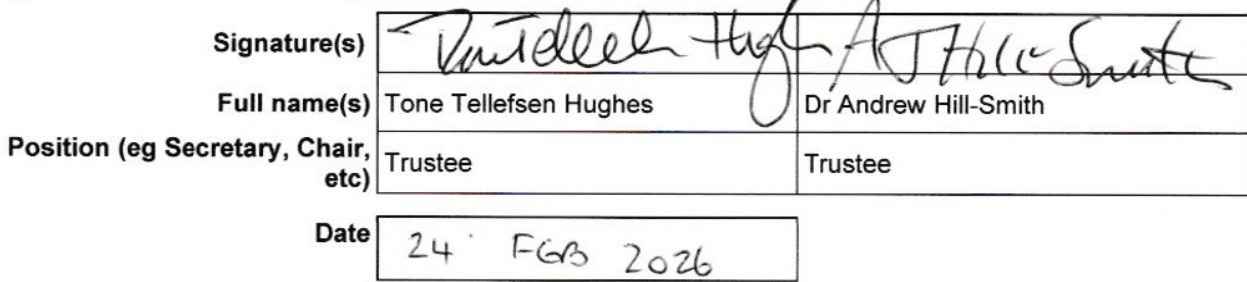 Signature(s) Hugh AJ Hill-Smith
Full name(s) Tone Tellefsen Hughes Dr Andrew Hill-Smith
Position (eg Secretary, Chair, etc) Trustee Trustee
Date 24 FEB 2026